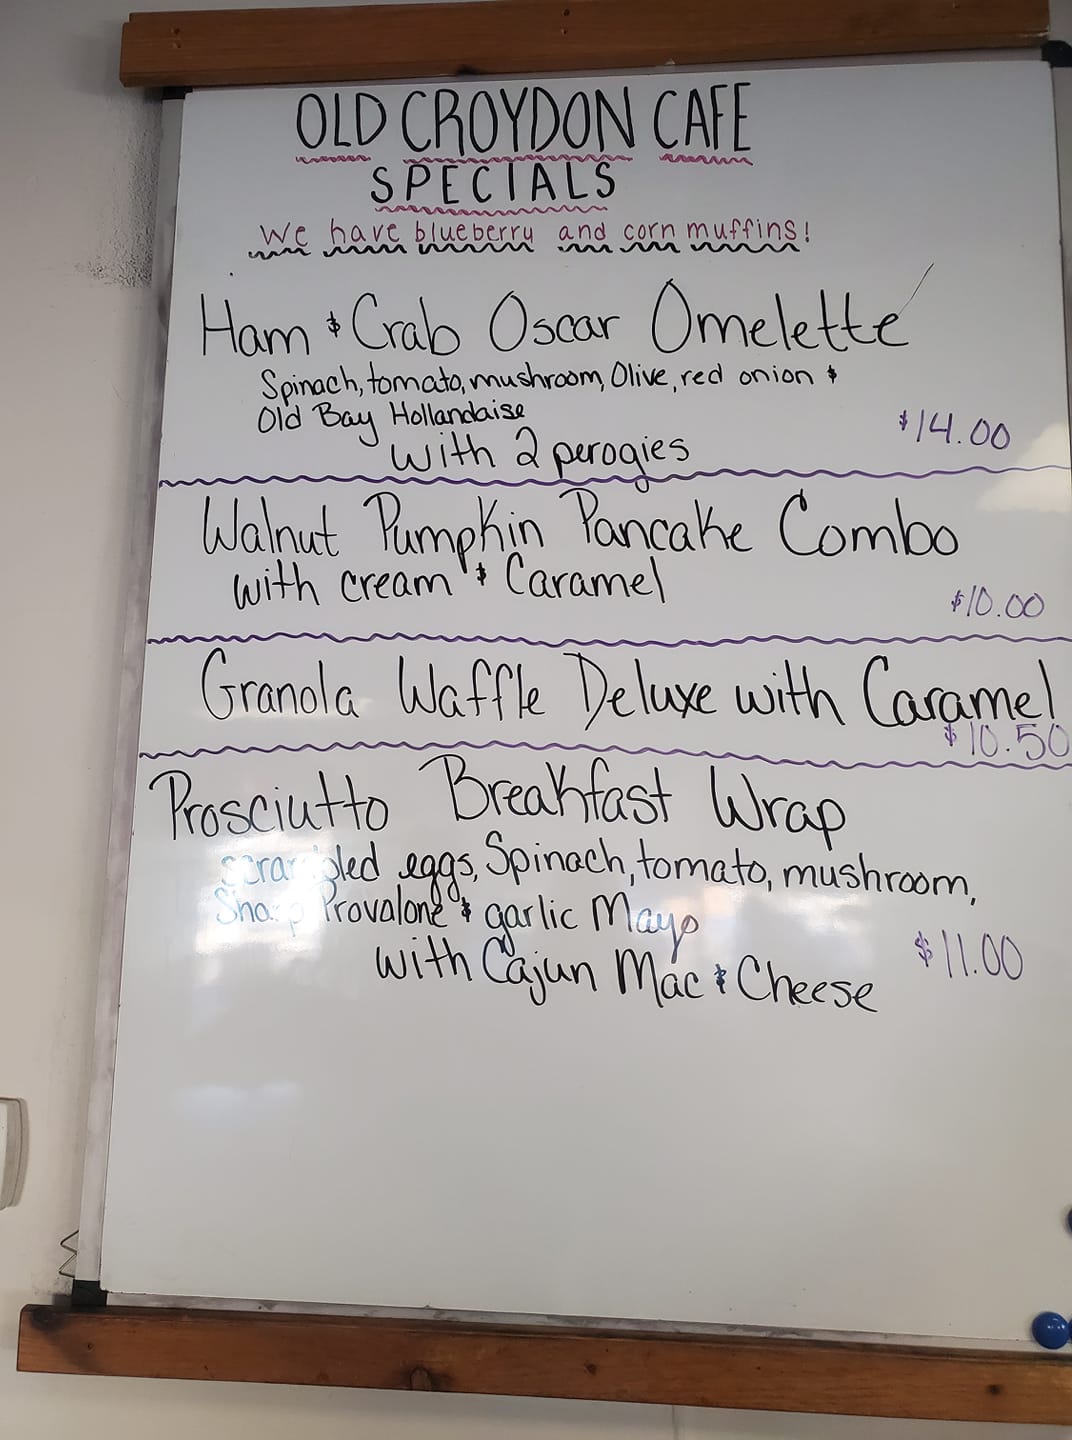 OLD CROYDON CAFE
SPECIALS
We have blueberry and corn muffins!
Ham & Crab Oscar Omelette
Spinach, tomato, mushroom, Olive, red onion &
Old Bay Hollandaise
$14.00
with 2 perogies
Walnut Pumpkin Pancake Combo
with cream & Caramel
$10.00
Granola Waffle Deluxe with Caramel
$10.50
Prosciutto Breakfast Wrap
scrambled eggs, Spinach, tomato, mushroom,
Sharp Provalone & garlic Mayo
$11.00
with Cajun Mac & Cheese